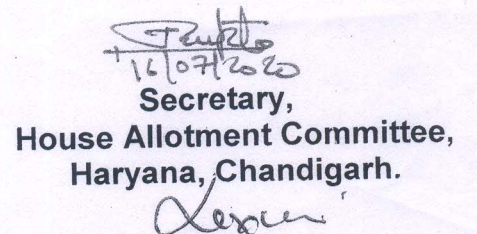 16/07/2020
Secretary,
House Allotment Committee,
Haryana, Chandigarh.